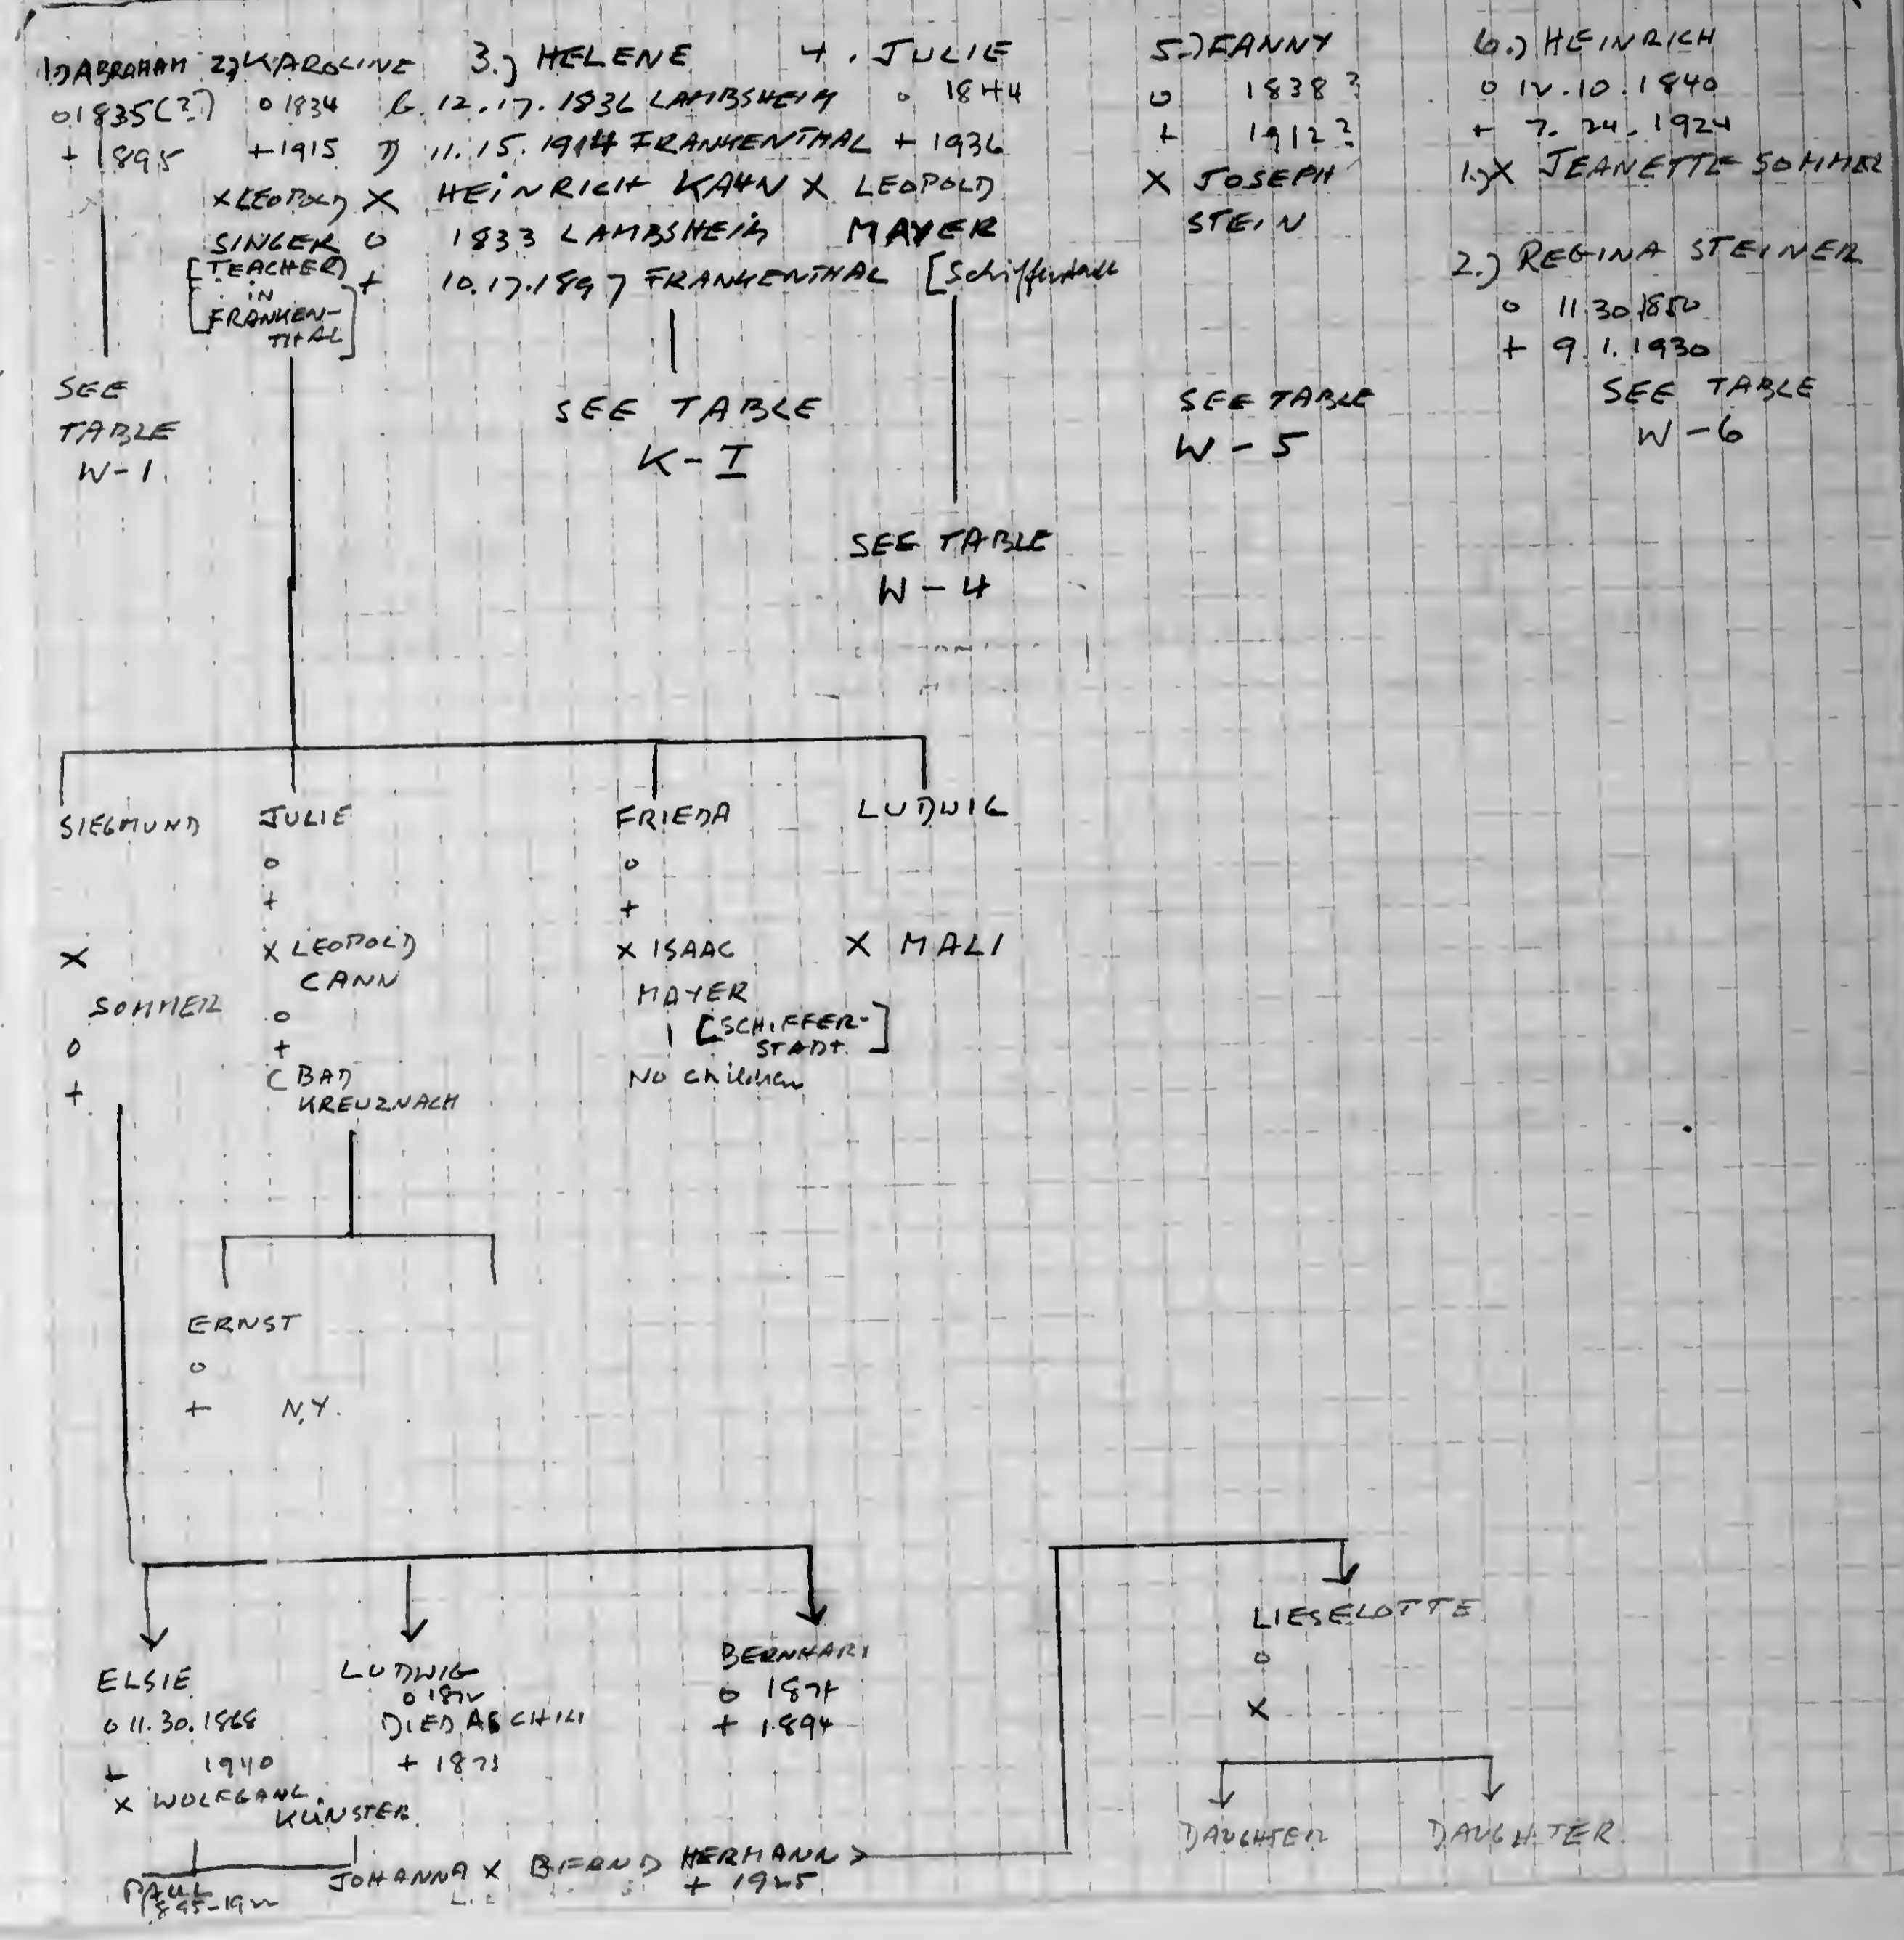 1) ABRAHAM
o 1835(?)
+ 1895
SEE
TABLE
W-1.
2) KAROLINE
o 1834
+ 1915
x LEOPOLD
SINGER
[TEACHER]
[IN
FRANKEN-
THAL]
3.) HELENE
b. 12.17.1836 LAMBSHEIM
D 11.15.1914 FRANKENTHAL
X HEINRICH KAHN
o 1833 LAMBSHEIM
+ 10.17.1897 FRANKENTHAL
SEE TABLE
K-I
4. JULIE
o 1844
+ 1936
X LEOPOLD
MAYER
[Schifferstadt
SEE TABLE
W-4
5.) FANNY
o 1838?
+ 1912?
X JOSEPH
STEIN
SEE TABLE
W-5
6.) HEINRICH
o 12.10.1840
+ 7.24.1924
1.) X JEANETTE SOMMER
2.) REGINA STEINER
o 11.30.1850
+ 9.1.1930
SEE TABLE
W-6
SIEGMUND
X
SOMMER
o
+
JULIE
o
+
X LEOPOLD
CANN
o
+
( BAD
KREUZNACH
FRIEDA
o
+
X ISAAC
MAYER
[SCHIFFER-
STADT.]
No children
LUDWIG
X MALI
ERNST
o
+ N.Y.
ELSIE
o 11.30.1868
+ 1940
X WOLFGANG
KÜNSTER
LUDWIG
o 1872
DIED AS CHILD
+ 1873
BERNHARD
o 1874
+ 1894
PAUL
JOHANNA X BERND HERMANN >
+ 1925
LIESELOTTE
o
X
DAUGHTER
DAUGHTER.